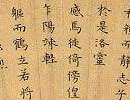 而靜志
於是洛靈
感焉徙倚傍徨
乍陽竦輕
軀而鶴立若將